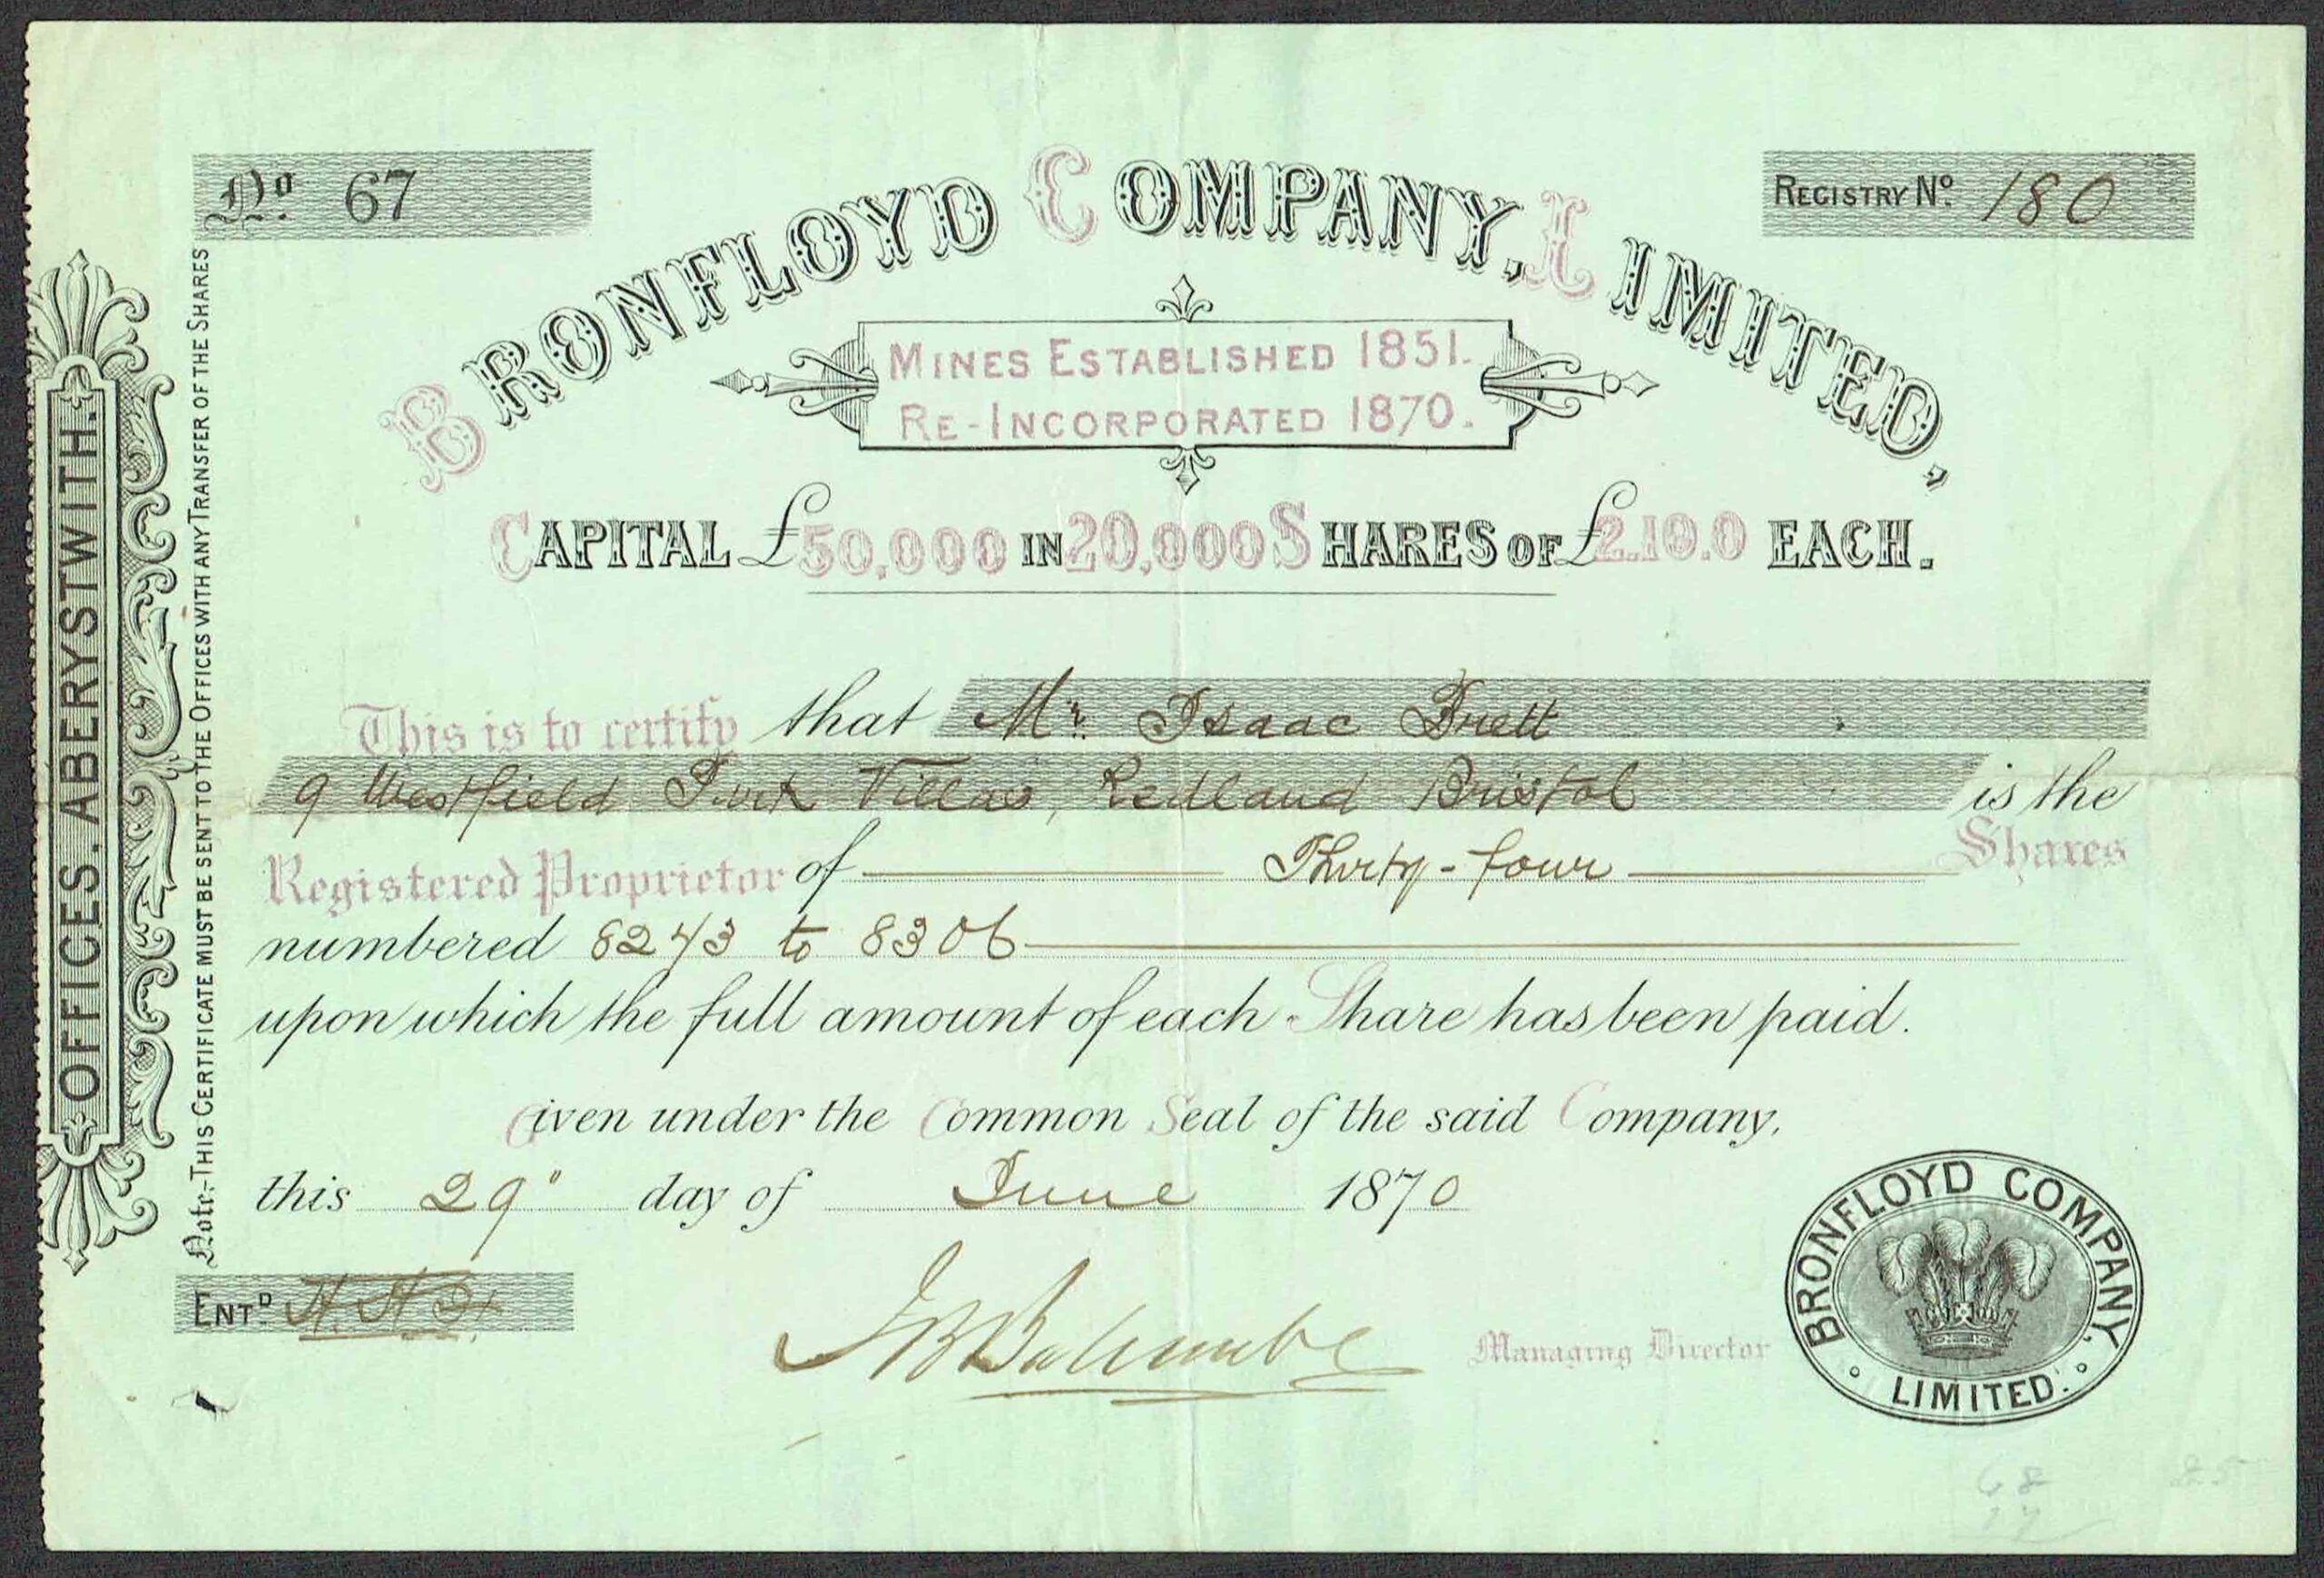 No. 67
REGISTRY No. 180
BRONFLOYD COMPANY, LIMITED,
MINES ESTABLISHED 1851.
RE-INCORPORATED 1870.
CAPITAL £50,000 IN 20,000 SHARES OF £2.10.0 EACH.
This is to certify that Mr. Isaac Brett
9 Westfield Park Villas, Redland Bristol is the
Registered Proprietor of Thirty-four Shares
numbered 8243 to 8306
upon which the full amount of each Share has been paid.
Given under the Common Seal of the said Company,
this 29" day of June 1870
ENTD.
Managing Director
BRONFLOYD COMPANY,
LIMITED.
OFFICES. ABERYSTWITH.
Note:-THIS CERTIFICATE MUST BE SENT TO THE OFFICES WITH ANY TRANSFER OF THE SHARES
68
17
25